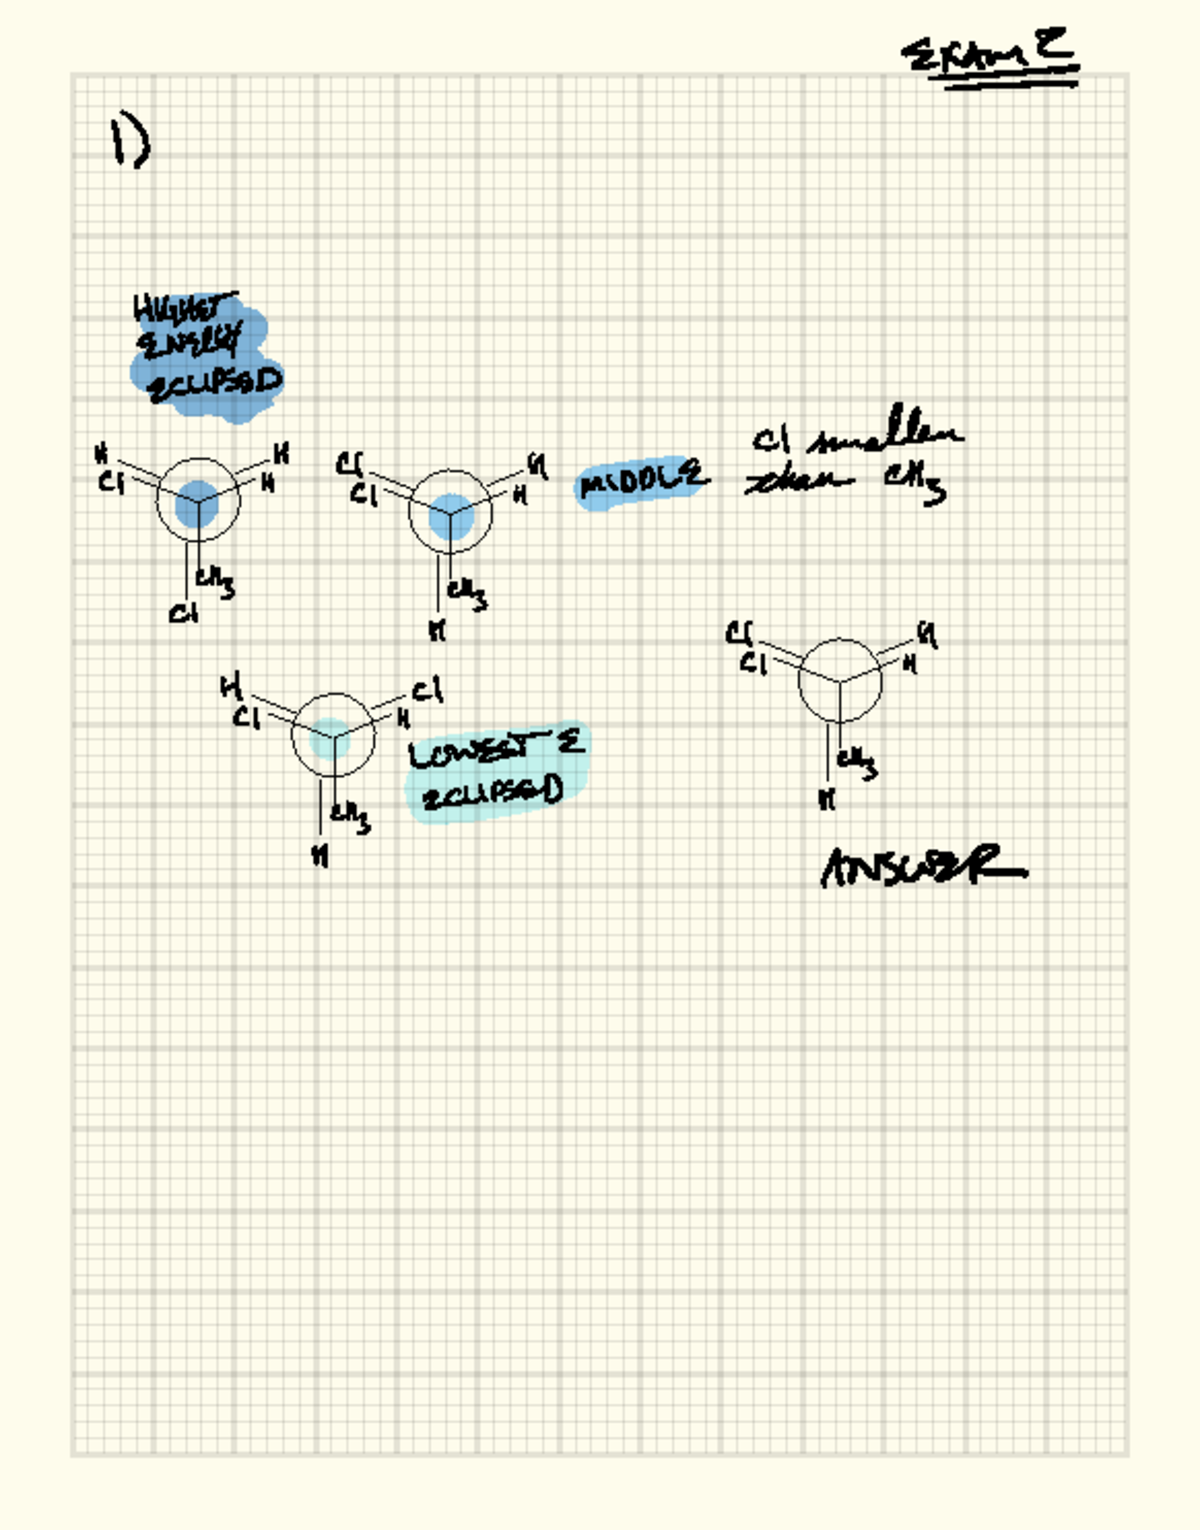 EXAM 2
1)
HIGHEST
ENERGY
ECLIPSED
H
H
Cl
H
CH3
Cl
Cl
H
Cl
H
CH3
H
MIDDLE
Cl smaller
than CH3
H
Cl
Cl
H
CH3
H
LOWEST E
ECLIPSED
Cl
H
Cl
H
CH3
H
ANSWER